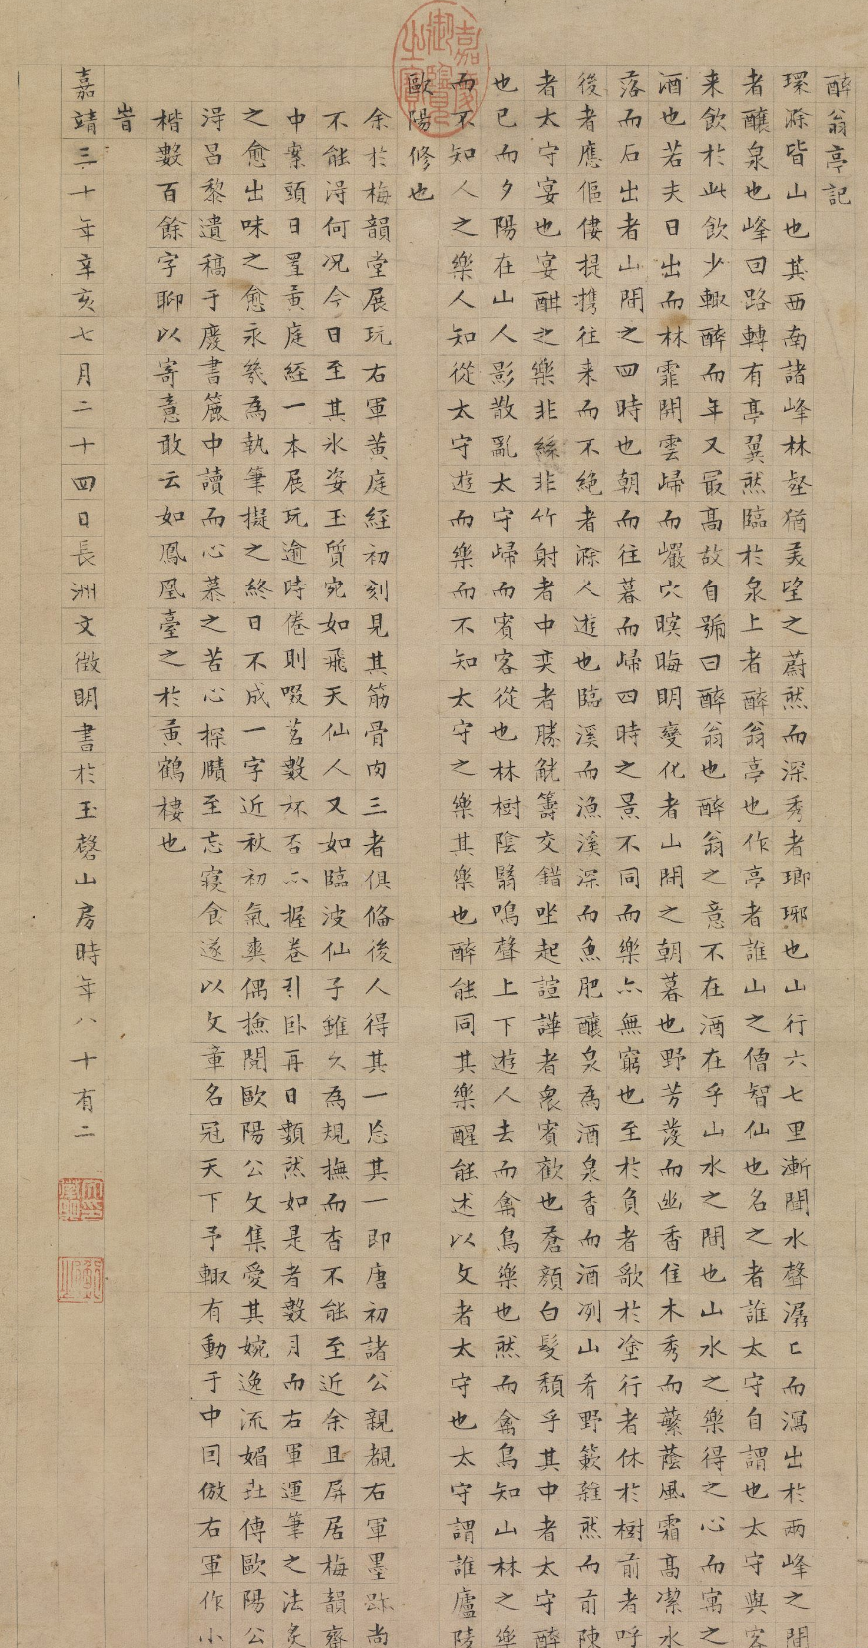 醉翁亭記
環滁皆山也其西南諸峰林壑猶美望之蔚然而深秀者瑯琊也山行六七里漸聞水聲潺〻而瀉出於兩峰之間
者釀泉也峰回路轉有亭翼然臨於泉上者醉翁亭也作亭者誰山之僧智仙也名之者誰太守自謂也太守與客
来飲於此飲少輒醉而年又最高故自號曰醉翁也醉翁之意不在酒在乎山水之間也山水之樂得之心而寓之
酒也若夫日出而林霏開雲歸而巖穴暝晦明變化者山間之朝暮也野芳發而幽香佳木秀而蘩蔭風霜高潔水
落而石出者山間之四時也朝而往暮而歸四時之景不同而樂亦無窮也至於負者歌於塗行者休於樹前者呼
後者應傴僂提攜往来而不絶者滁人遊也臨溪而漁溪深而魚肥釀泉為酒泉香而酒冽山肴野蔌雜然而前陳
者太守宴也宴酣之樂非絲非竹射者中奕者勝觥籌交錯坐起諠譁者衆賓歡也蒼顔白髮頹乎其中者太守醉
也已而夕陽在山人影散亂太守歸而賓客從也林樹陰翳鳴聲上下遊人去而禽鳥樂也然而禽鳥知山林之樂
而不知人之樂人知從太守遊而樂而不知太守之樂其樂也醉能同其樂醒能述以文者太守也太守謂誰廬陵
歐陽修也
余於梅韻堂展玩右軍黄庭經初刻見其筋骨肉三者俱偹後人得其一忘其一即唐初諸公親覩右軍墨跡尚
不能淂何况今日至其氷姿玉質宛如飛天仙人又如臨波仙子雖久為規撫而杳不能至近余且屏居梅韻齋
中案頭日置黄庭經一本展玩逾時倦則啜茗數杯否亦握卷引卧再日類然如是者數月而右軍運筆之法炙
之愈出味之愈永幾為執筆擬之終日不成一字近秋初氣爽偶撿閲歐陽公文集愛其婉逸流媚壯傳歐陽公
淂昌黎遺稿于廢書簏中讀而心慕之苦心探賾至忘寢食遂以文章名冠天下予輒有動于中囙倣右軍作小
楷數百餘字聊以寄意敢云如鳳凰臺之於黄鶴樓也
旹
嘉靖三十年辛亥七月二十四日長洲文徵明書於玉磬山房時年八十有二
嘉慶御覽之寶